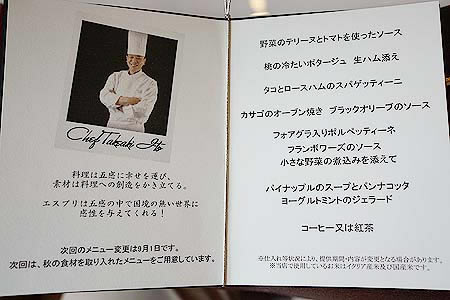 Chef Takaaki Ito
料理は五感に幸せを運び、
素材は料理への創造をかき立てる。
エスプリは五感の中で国境の無い世界に
感性を与えてくれる！
次回のメニュー変更は9月1日です。
次回は、秋の食材を取り入れたメニューをご用意しています。
野菜のテリーヌとトマトを使ったソース
桃の冷たいポタージュ　生ハム添え
タコとロースハムのスパゲッティーニ
カサゴのオーブン焼き　ブラックオリーブのソース
フォアグラ入りポルペッティーネ
フランボワーズのソース
小さな野菜の煮込みを添えて
パイナップルのスープとパンナコッタ
ヨーグルトミントのジェラード
コーヒー又は紅茶
※仕入れ等状況により、提供期間・内容が変更となる場合があります。
※当店で使用しているお米はイタリア産米及び国産米です。